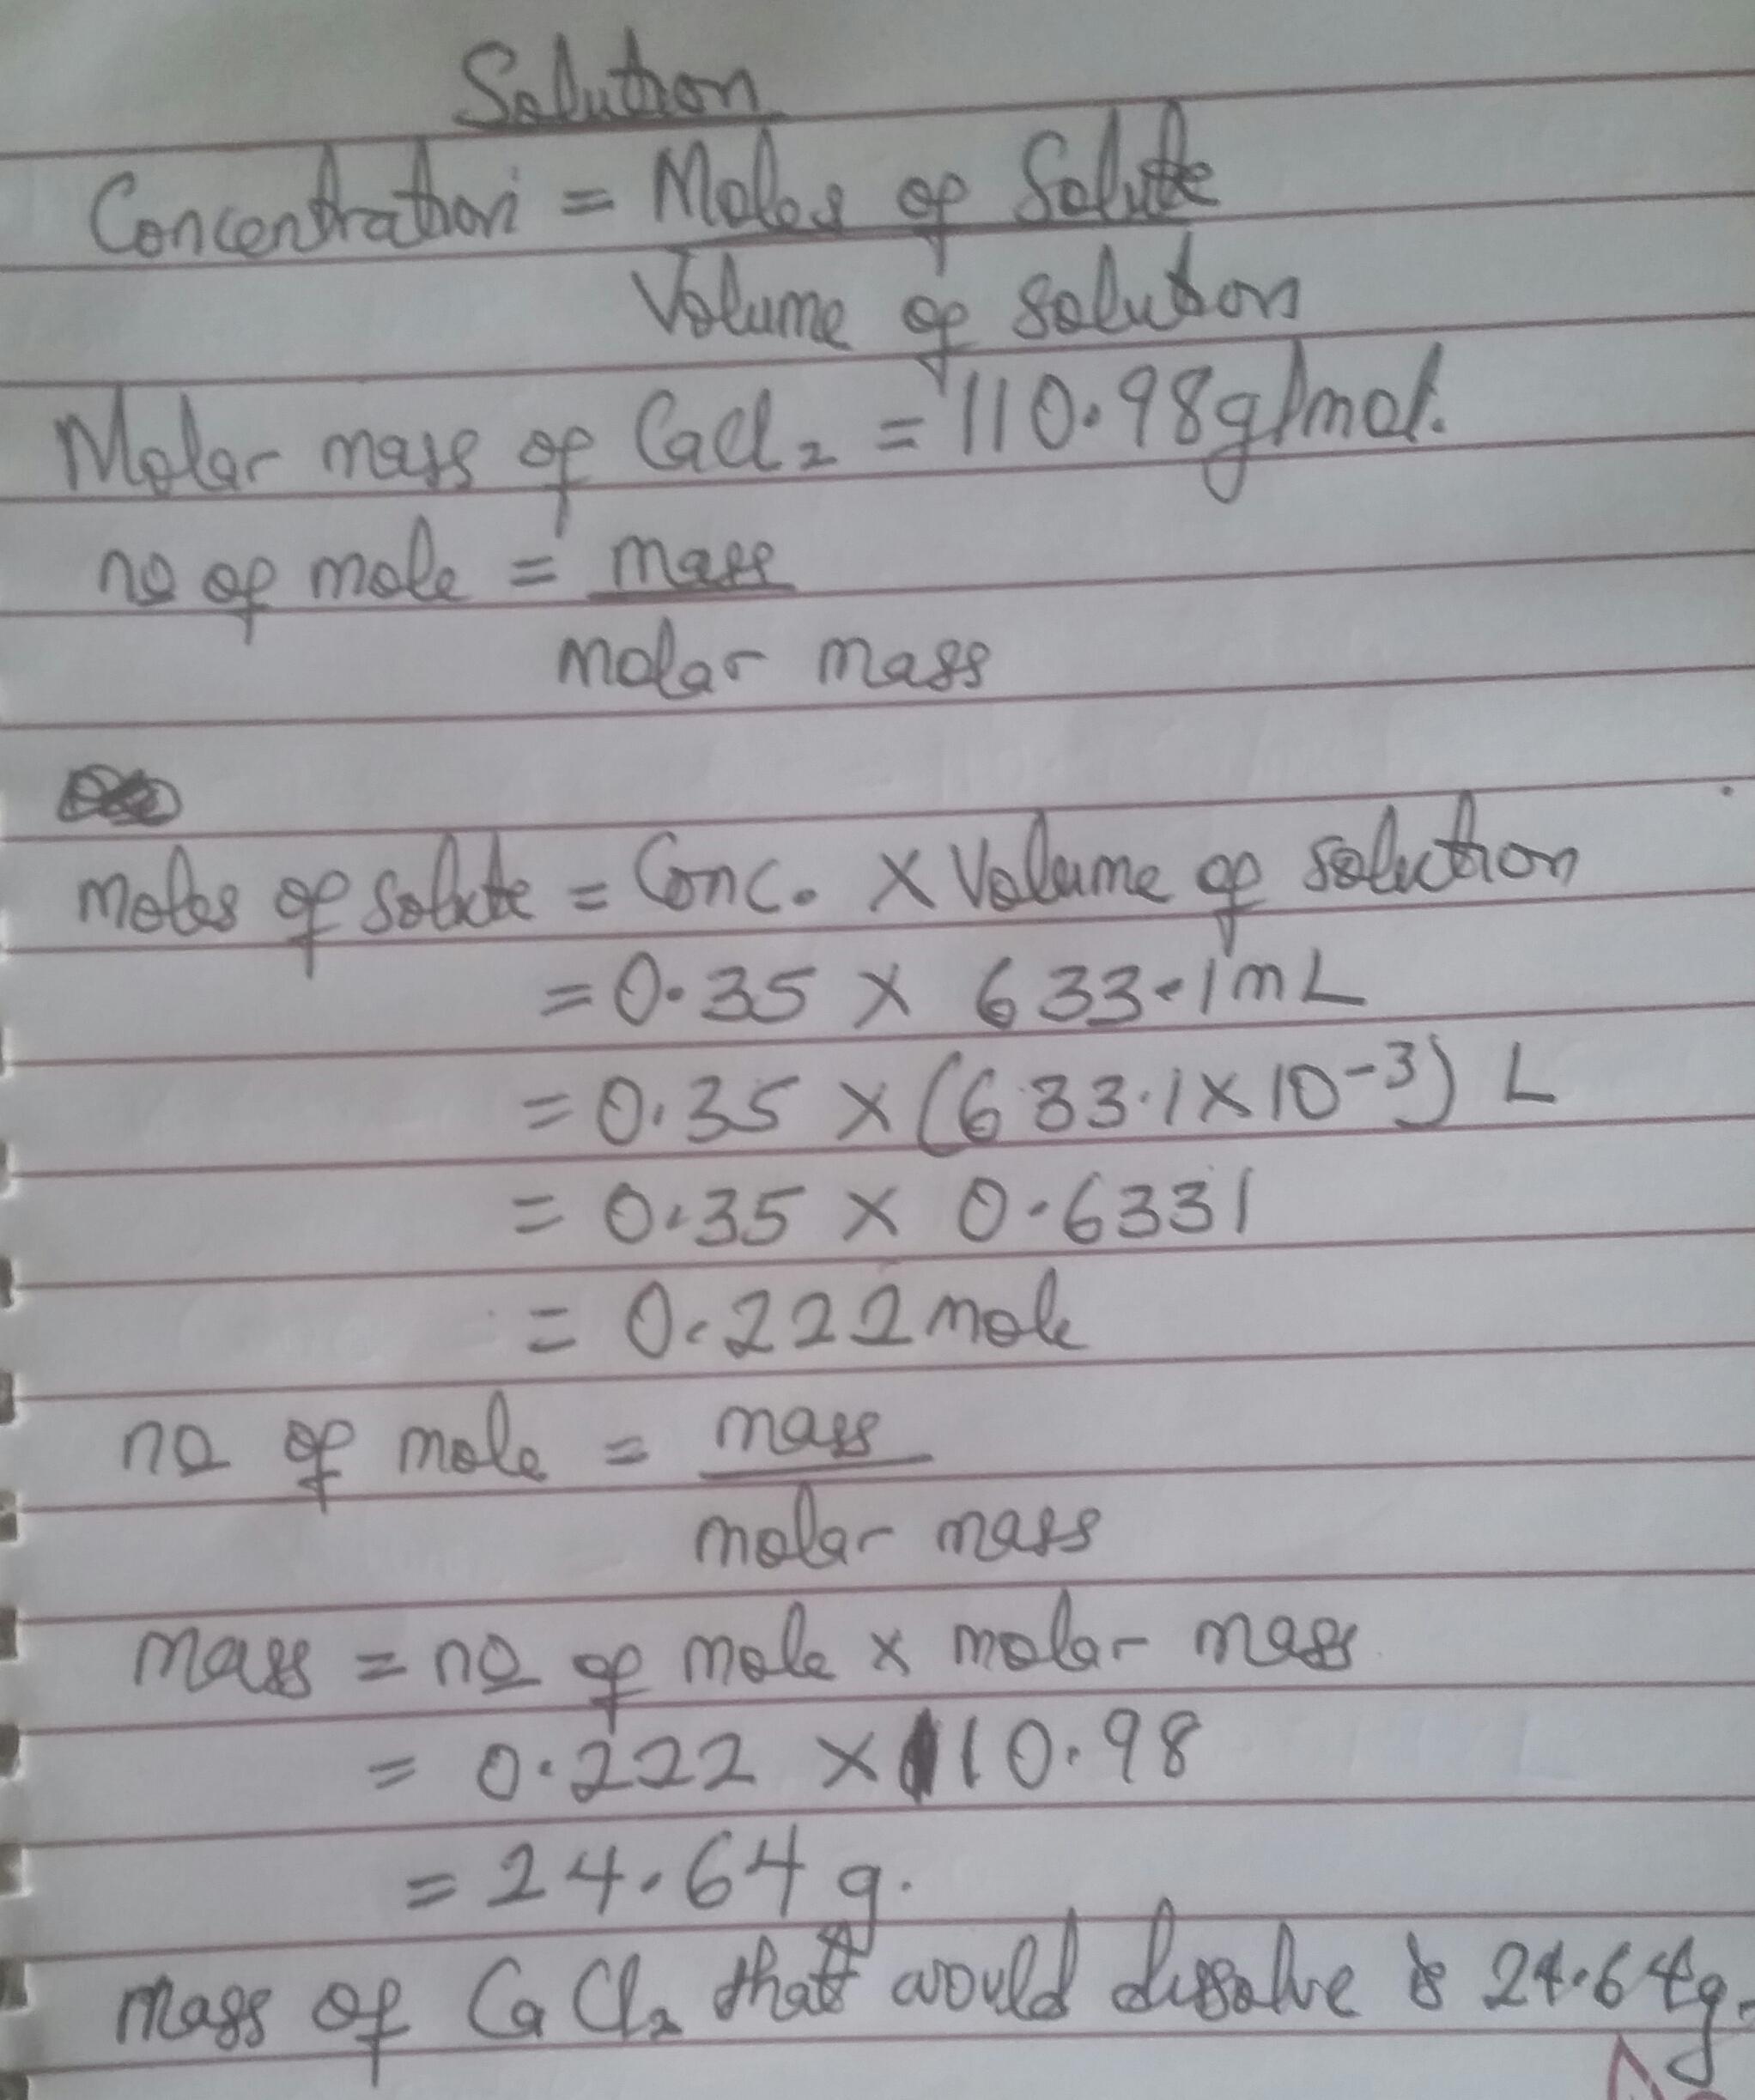 Solution
Concentration = Moles of Solute
Volume of solution
Molar mass of CaCl₂ = 110.98g/mol.
no of mole = mass
molar mass
moles of solute = Conc. × Volume of solution
= 0.35 × 633.1mL
= 0.35 × (633.1×10⁻³) L
= 0.35 × 0.6331
= 0.222 mole
no of mole = mass
molar mass
mass = no of mole × molar mass
= 0.222 × 110.98
= 24.64 g.
mass of CaCl₂ that would dissolve is 24.64g.